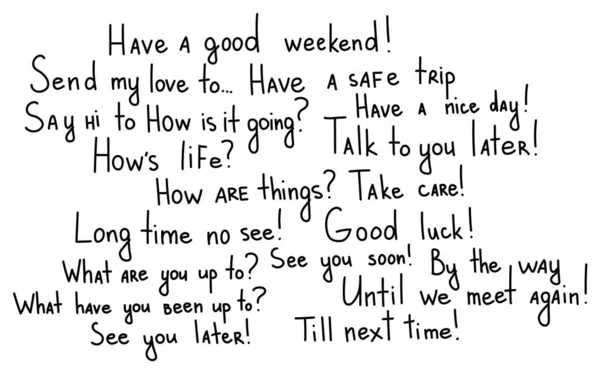 Have a good weekend!
Send my love to... Have a safe trip
Say hi to How is it going? Have a nice day!
How's life? Talk to you later!
How are things? Take care!
Long time no see! Good luck!
What are you up to? See you soon! By the way
What have you been up to? Until we meet again!
See you later! Till next time!